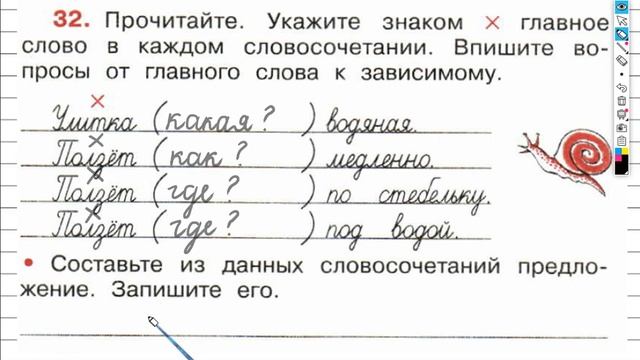 32. Прочитайте. Укажите знаком × главное
слово в каждом словосочетании. Впишите во-
просы от главного слова к зависимому.
Улитка (какая? ) водяная.
Ползёт (как? ) медленно.
Ползёт (где? ) по стебельку.
Ползёт (где? ) под водой.
• Составьте из данных словосочетаний предло-
жение. Запишите его.